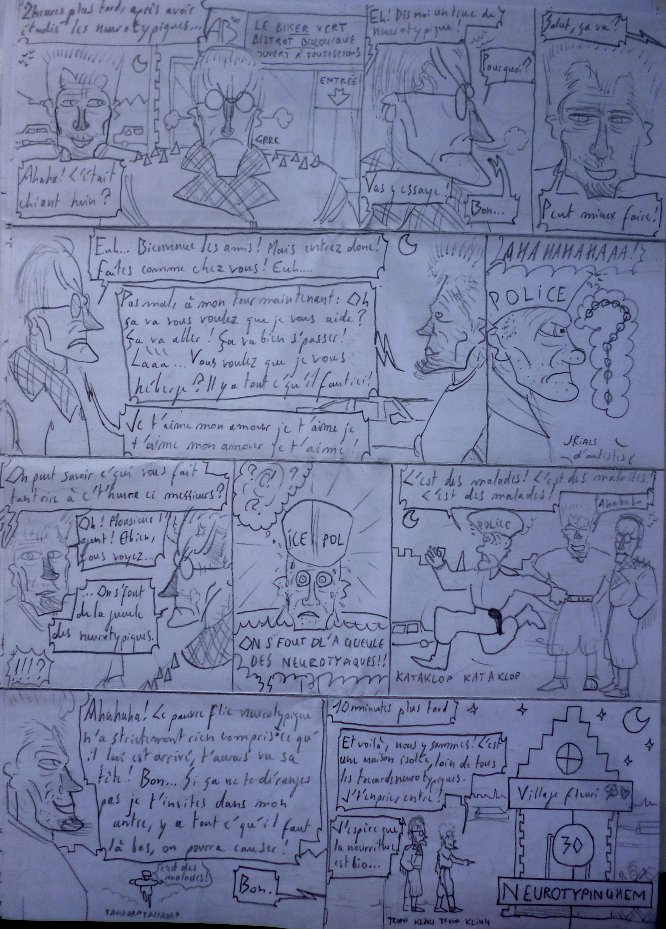 2 heures plus tards après avoir
étudié les neurotypiques...
AB
LE BIKER VERT
BISTROT BIOLOGIQUE
OUVERT A TOUTES ET TOUS
ENTRÉE
GRRR
Ahaha! C'était
chiant hein?
Eh! Dis moi un truc de
neurotypique!
Pourquoi?
Vas y essaye!
Bon...
Salut, ça va?
Peut mieux faire!
Euh... Bienvenue les amis! Mais entrez donc!
Faites comme chez vous! Euh....
Pas mal, à mon tour maintenant: Oh
ça va vous voulez que je vous aide?
Ça va aller! Ça va bien s'passer!
Lààà... Vous voulez que je vous
héberge? Il y a tout c'qu'il faut ici!
Je t'aime mon amour je t'aime je
t'aime mon amour je t'aime!!
AHAHAHAHAAA!
POLICE
Rires
d'autistes
On peut savoir c'qui vous fait
tant rire à c't'heure ci messieurs?
Oh! Monsieur l'
agent! Eh bien,
vous voyez...
...On s'fout
de la gueule
des neurotypiques.
!!!?
ICE POL
ON S'FOUT DL'A GUEULE
DES NEUROTYPIQUES!!
C'est des malades! C'est des malades!
C'est des malades!
Ahahaha
POLICE
KATAKLOP KATAKLOP
Ahahaha! Le pauvre flic neurotypique
n'a strictement rien compris à c'qu'
il lui est arrivé, t'aurais vu sa
tête! Bon... Si ça ne te déranges
pas je t'invites dans mon
antre, y a tout c'qu'il faut
là bas, on pourra causer!
c'est des
malades!
Bon.
10 minutes plus tard
Et voilà, nous y sommes. C'est
une maison isolée, loin de tous
les tocards neurotypiques.
J't'en prie, entre!
J'espère que
la nourriture
est bio...
Village fleuri
30
NEUROTYPINGHEM